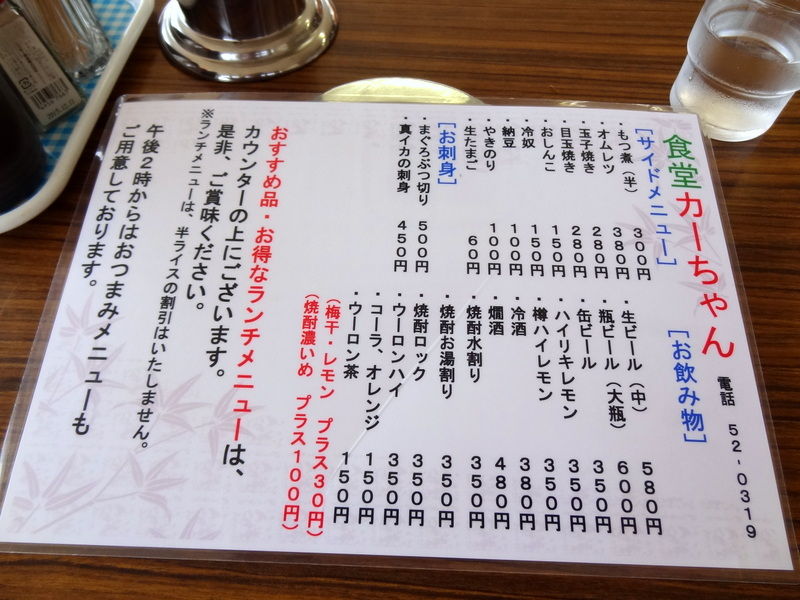 食堂カーちゃん
電話　52-0319
［サイドメニュー］
・もつ煮（半）　300円
・オムレツ　380円
・玉子焼き　280円
・目玉焼き　280円
・おしんこ　150円
・冷奴　150円
・納豆　100円
・やきのり　100円
・生たまご　60円
［お刺身］
・まぐろぶつ切り　500円
・真イカの刺身　450円
［お飲み物］
・生ビール（中）　580円
・瓶ビール（大瓶）　600円
・缶ビール　350円
・ハイリキレモン　350円
・樽ハイレモン　350円
・冷酒　380円
・燗酒　480円
・焼酎水割り　350円
・焼酎お湯割り　350円
・焼酎ロック　350円
・ウーロンハイ　350円
・コーラ、オレンジ　150円
・ウーロン茶　150円
（梅干・レモン　プラス30円）
（焼酎濃いめ　プラス100円）
おすすめ品・お得なランチメニューは、
カウンターの上にございます。
是非、ご賞味ください。
※ランチメニューは、半ライスの割引はいたしません。
午後2時からはおつまみメニューも
ご用意しております。